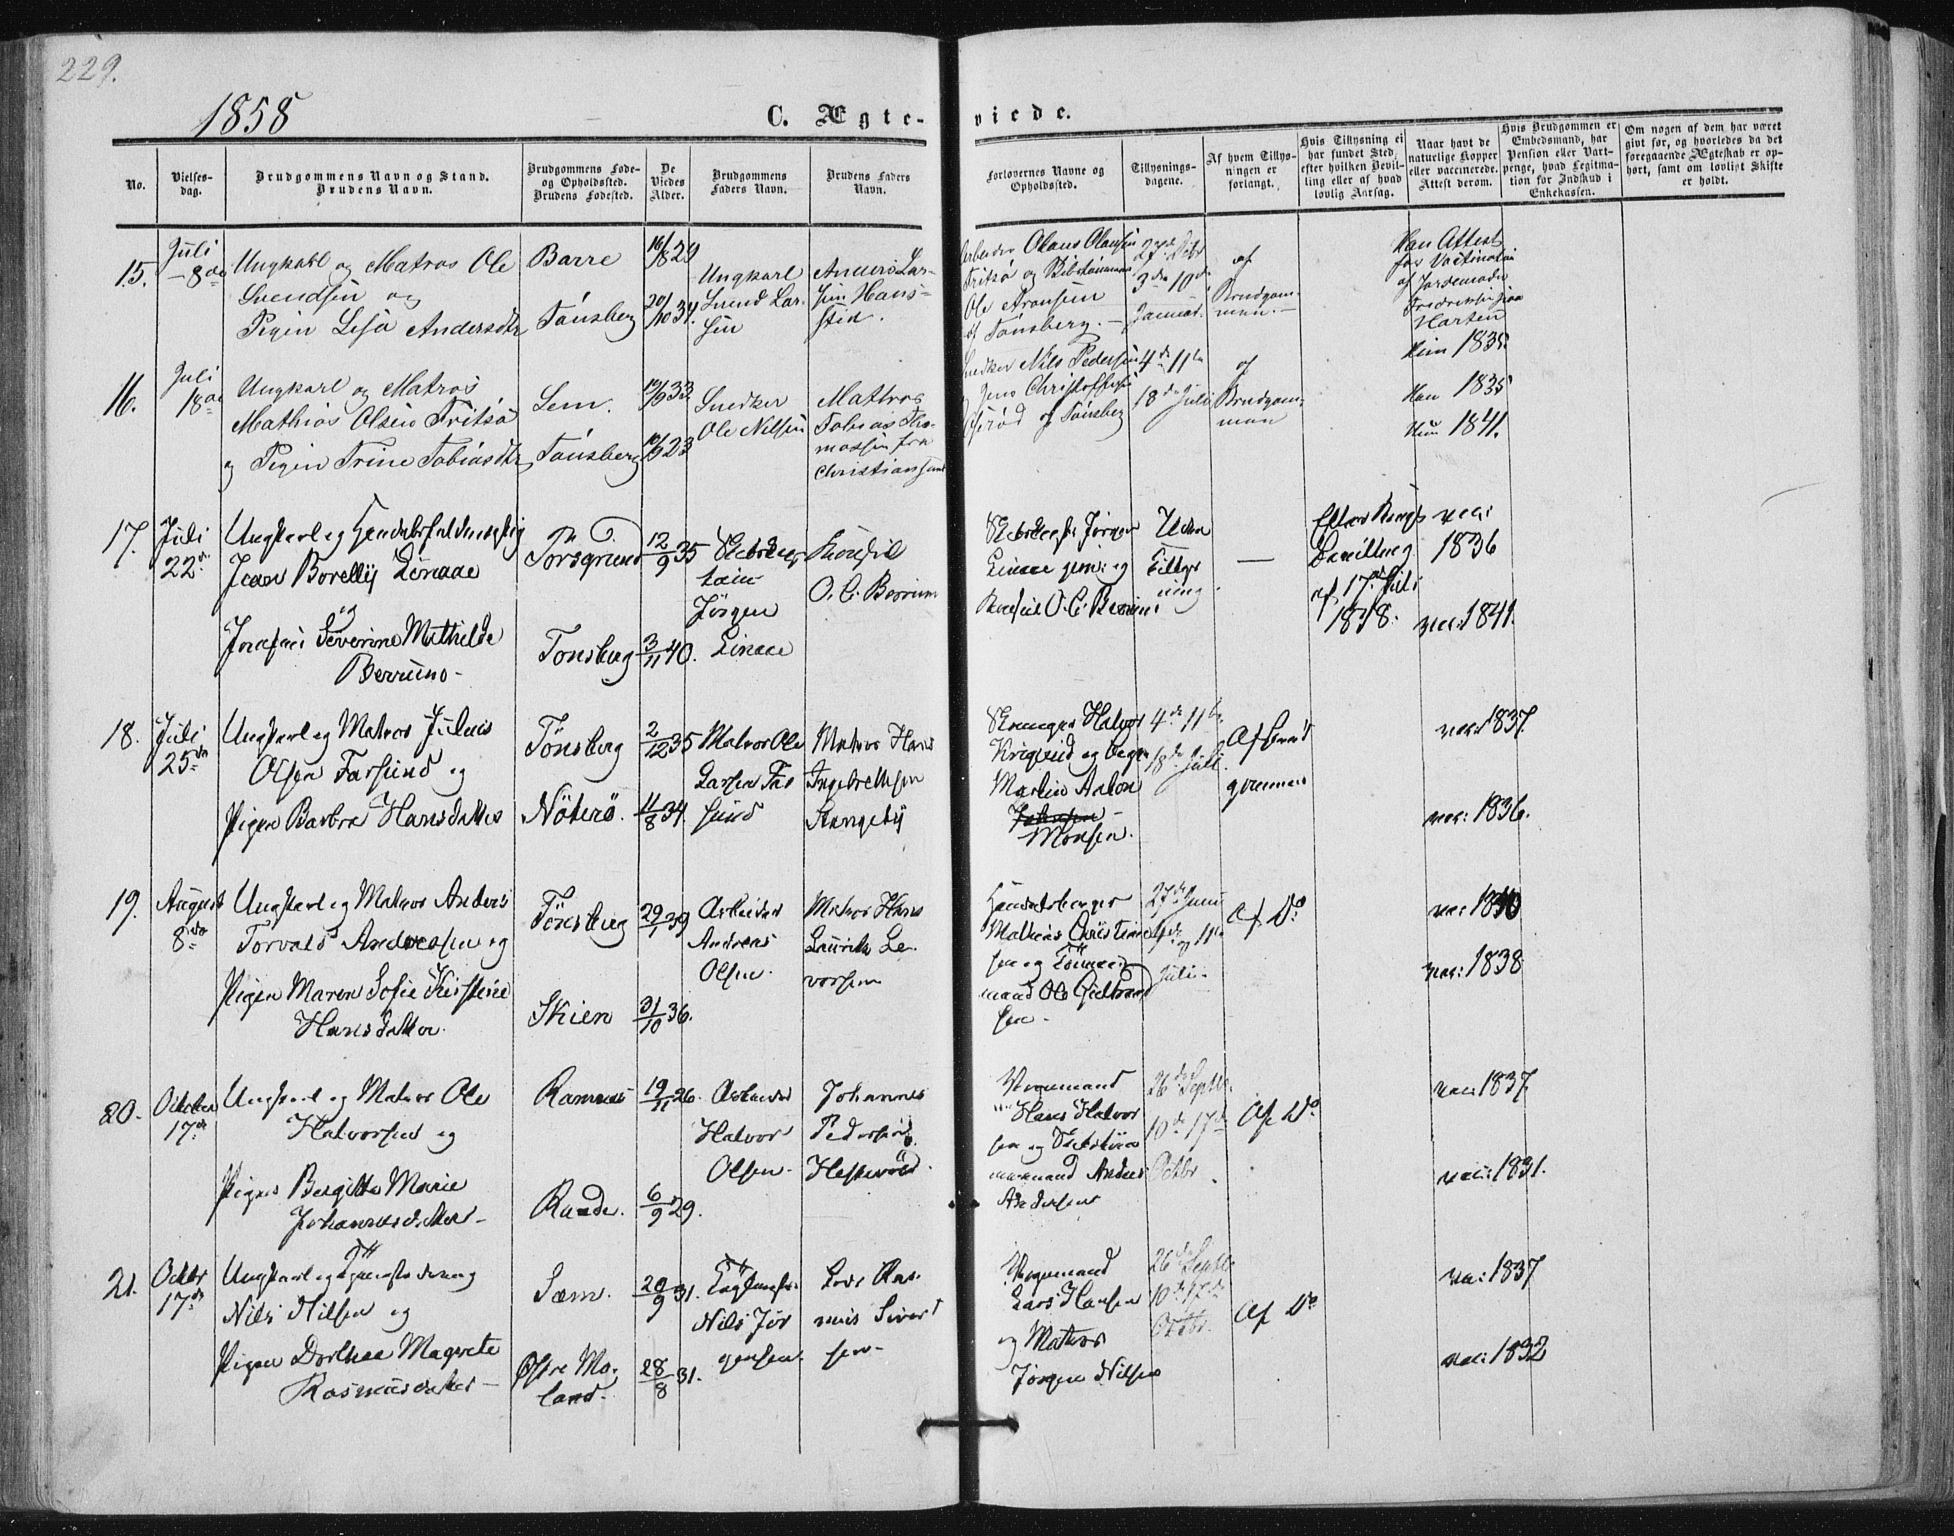 229.
1858
C. Ægte-
viede.
No.
Vielses-
dag.
Brudgommens Navn og Stand.
Brudens Navn.
Brudgommens Føde-
og Opholdssted.
Brudens Fødested.
De
Viedes
Alder.
Brudgommens
Faders Navn.
Brudens Faders
Navn.
Forlovernes Navne og
Opholdssted.
Tillysnings-
dagene.
Af hvem Tillys-
ningen er
forlangt.
Hvis Tillysning ei
har fundet Sted,
efter hvilken Bevil-
ling eller af hvad
lovlig Aarsag.
Naar havt de
naturlige Kopper
eller vaccinerede.
Attest derom.
Hvis Brudgommen er
Embedsmand, har
Pension eller Vart-
penge, hvad Legitima-
tion for Indskud i
Enkekassen.
Om nogen af dem har været
gift før, og hvorledes da det
foregaaende Ægteskab er op-
hørt, samt om lovligt Skifte
er holdt.
15.
Juli
8de
Ungkarl og Matros Ole
Svendsen og
Pigen Lesa Andersdtr
Barre
Tønsberg
16/8 29
20/10 34.
Ungkarl
Svend Lar-
sen
Anders Lar-
sen Hans-
sted.
Arbeider Olaus Olausen
Fritsø og
Ole Aronsen
af Tønsberg.
27de Debr
3die 10de
Januar.
af
Brudgom-
men.
Han Attest
for Vaccination
af Jordemoder
Horten
Hun 1835.
16.
Juli
18de
Ungkarl og Matros
Mathias Olsen Fritsø
og Pigen Trine Tobiasdtr
Sem.
Tønsberg
33
23
Snedker
Ole Nilsen
Matros
Tobias Tho-
massen fra
Christiansund
Snedker Nils Pedersen
og Jens Christoffersen
af Tønsberg
4de 11te
18de Juli
af
Brudgom-
men
Han 1835
Hun 1841.
17.
Juli
22de
Ungkarl og Handelsfuldmægtig
Jean Borelly Linaae
og
Josefine Severine Mathilde
Berrum
Porsgrund
Tønsberg
12/9 35
3/11 40.
Skibskap-
tain
Jørgen
Linaae
Konsul
O. C. Berrum
Skibskapt. Jørgen
Linaae jun: og
Konsul O. C. Berrum.
Uden
Tillys
ning.
—
Efter Kongl
Bevilling
af 17de Juli
1858.
vac:
1836
vac: 1841.
18.
Juli
25de
Ungkarl og Matros Julius
Olsen Farsund og
Pigen Barbra Hansdatter
Tönsberg
Nöterö.
2/12 35
11/8 34.
Matros Ole
Larsen Far
sund
Matros Hans
Ingebrethsen
Stangeby
Halvor
og
Martin Anton
Johnsen
Monsen.
4de 11te
18de Juli.
Af Brud
gommen
vac: 1837.
vac: 1836.
19.
August
8de
Ungkarl og Matros Anders
Torvald Andreasen og
Pigen Maren Sofie Kristine
Hansdatter.
Tönsberg
Skien
29/1 39
31/10 36.
Arbeider
Andreas
Olsen.
Matros Hans
Laurits Le-
vorsen
Mathias Christian
sen og
mand Ole Guldbrand
sen.
27de Juni
4de og 11te
Juli.
Af Do
vac: 1838
20.
October
17de
Ungkarl og Matros Ole
Halvorsen og
Pigen Bergitte Marie
Johannesdatter
Ramnes
Raade.
19/11 26.
6/9 29.
Arbeider
Halvor
Olsen.
Johannes
Pedersen
Vognmand
Hans Halvor
sen og Skibstöm
mermand Anders
Andersen
26de Septbr.
10de 17de
Octbr.
Af Do
vac: 1837.
vac: 1831.
21.
Octbr
17de
Ungkarl og
Nils Nilsen og
Pigen Dorthea Magrete
Rasmusdatter
Sæm.
Østre Mo-
land.
20/9 31.
28/8 31.
Nils Jør
gensen.
Lods Ras-
mus Sivert
sen.
Vognmand
Lars Hansen
og Matros
Jørgen Nilsen
26de Septbr.
10de 17de
Octbr.
Af Do
vac: 1837
vac: 1832